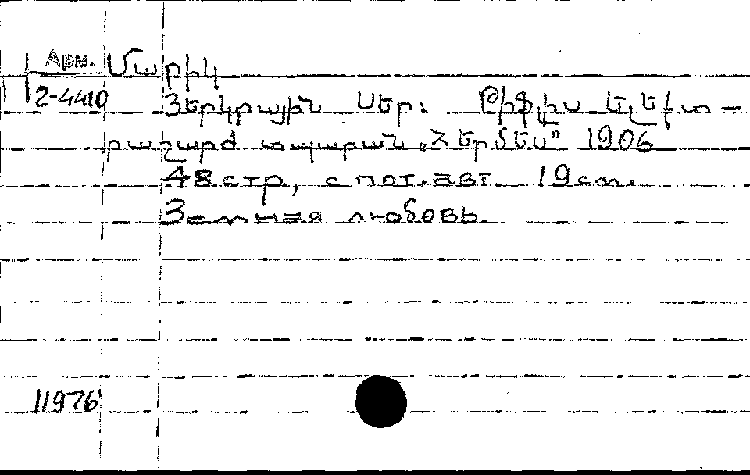 Арм. Մարիկ
2-4410 Յերկրային Սեր: Թիֆլիս Էլեկտ-
րաշարժ տպարան „Հերմես" 1906
48 стр, с пот. авт. 19 см.
Земная любовь.
11976